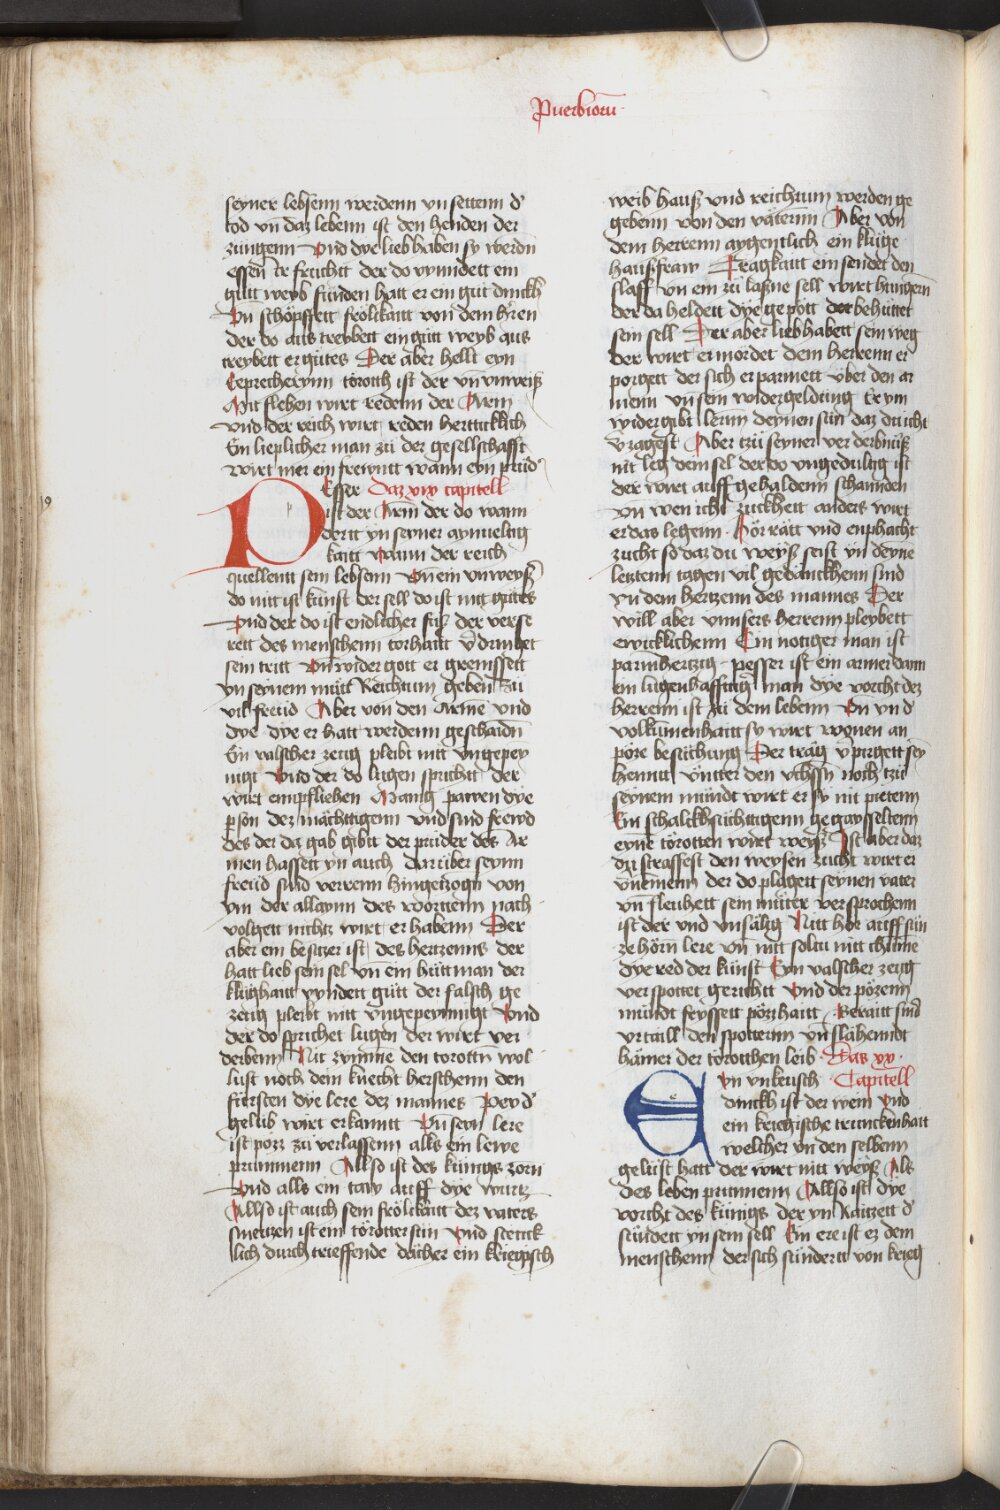 Puerbiorū
seyner lebsenn werdenn vn settenn d'
tod vn daz lebenn ist den henden der
zungenn Vnd dye lieb haben sy werdn
essen ir fruchtt der do vynndett ein
gutt weyb funden hatt er ein gut dinckh
Vn schöpffett frölikaitt von dem h'ren
der do aus treybett ein gutt weyb aus
treybett er gutes Der aber hellt eyn
Eeprecherynn torotth ist der vn vnweiß
Mit flehen wirt redenn der Arm
vnd der reich wirt reden herttiklich
Ein lieplicher man zu der gesellschafft
wirt mer ein frewntt wann eyn prud'
19
PEsser Daz xix capitell
ist der Arm der do wann
dertt yn seyner aynueltig
kaitt wann der reich
quellentt sein lebsenn Vn ein vnweyß
do nitt ist kunst der sell do ist nitt guttes
Vnd der do ist endlicher fuß der verse
rett des menschenn torhaitt v'dringet
sein tritt Vn wider gott er greinsett
yn seynem mutt Reichtum geben zu
vil freud Aber von den Arme vnd
dye dye er hatt werdenn geschaidn
Ein valscher zeug pleibt nitt vngepey
nigt Vnd der do lugen sprichtt der
wirt empfliehen Manig parren dye
p'son dez mächtigenn vnd sind frewd
des der da gab gibtt der prüder des Ar
men hassett yn auch darüber seynn
freud sind verrenn hingetzogn von
ym der allaynn des wörttenn nach
volgett nichtz wirt er habenn Der
aber ein besitzer ist des hertzenns der
hatt lieb sein sel vn ein huttman der
klughaitt vyndett gütt der falsch ge
zeug pleibt nitt vngepeynnigt Vnd
der do sprichet lugen der wirt ver
derbenn Nit zymme den torottn wol
lust noch dem knecht herschenn den
fürsten dye lere dez mannes Pey d'
gelüb wirt erkanntt Vn seyn lere
ist pözz zu verlassenn alls ein lewe
prummenn Allso ist des kunigs zorn
Vnd alls ein taw auff dye wurtz
Allso ist auch sein frölikaitt dez vaters
smertzen ist ein torotter sun Vnd stetick
lich durch trieffende dächer ein kriegisch
weib hauß vnd reichtum werden ge
gebenn von den väternn Aber von
dem herrenn aygentlich ein kluge
haußfraw Tragkaitt ein sendet den
slaff vn ein zu laßne sell wirt hungern
der da heldett dye gepott der behuttet
sein sell Der aber lieb habett sein weg
der wirt ermordet dem herrenn er
porgett der sich erparmett vber den ar
menn vn sein widergeldung Er ym
widergibt lernn deynen sun daz du icht
v'zagest Aber tzu seyner verderbnuß
nit leg dein sel der do vngedultig ist
der wirt auff gehaldenn schannden
vn wen icht zuckhett anders wirt
er das legenn Hör rätt vnd enphacht
zucht so daz du weyß seist yn deyne
letztenn tagen vil gedanckhenn sind
yn dem hertzenn des mannes Der
will aber vnnsers herrenn pleybett
ewicklichenn Ein notiger man ist
parmhertzig pesser ist ein armer dann
ein lugenhafftig man dye vorcht dez
herrenn ist zu dem lebenn Vn yn d'
vollkumenhaitt sy wirt wonen an
pöze besuchung Der träg v'pirgett sey
henntt vnnter den vchssn noch tzu
seynem mundt wirt er sy nit pietenn
Ein schalckhsüchttigenn gegayssellenn
eynn torotten wirt weyß Ist aber daz
du straffest den weysen zücht wirt er
v'nemenn der do plagett seynen vater
vn fleuhett sein mutter versprochenn
ist der vnd vnsälig Nitt hör auff sun
ze hörn lere vn nitt soltu nitt chunne
dye red der kunst Eyn valscher zeug
verspottet gerichtt Vnd der pözenn
mundt seyssett pözzhaitt Beraitt sind
vrtaill den spotternn vn slahenndt
hämer der torotthen leib Das xx
EYn vnkeusch Capitell
dinckh ist der wein Vnd
ein kriegische trunckenhaitt
welcher yn den selbenn
gelüst hatt der wirt nitt weyß Als
des leben prümenn Allso ist dye
vorcht des künigs der yn raitzett d'
sündett yn sein sell Ein ere ist ez dem
menschenn der sich sündertt von krieg